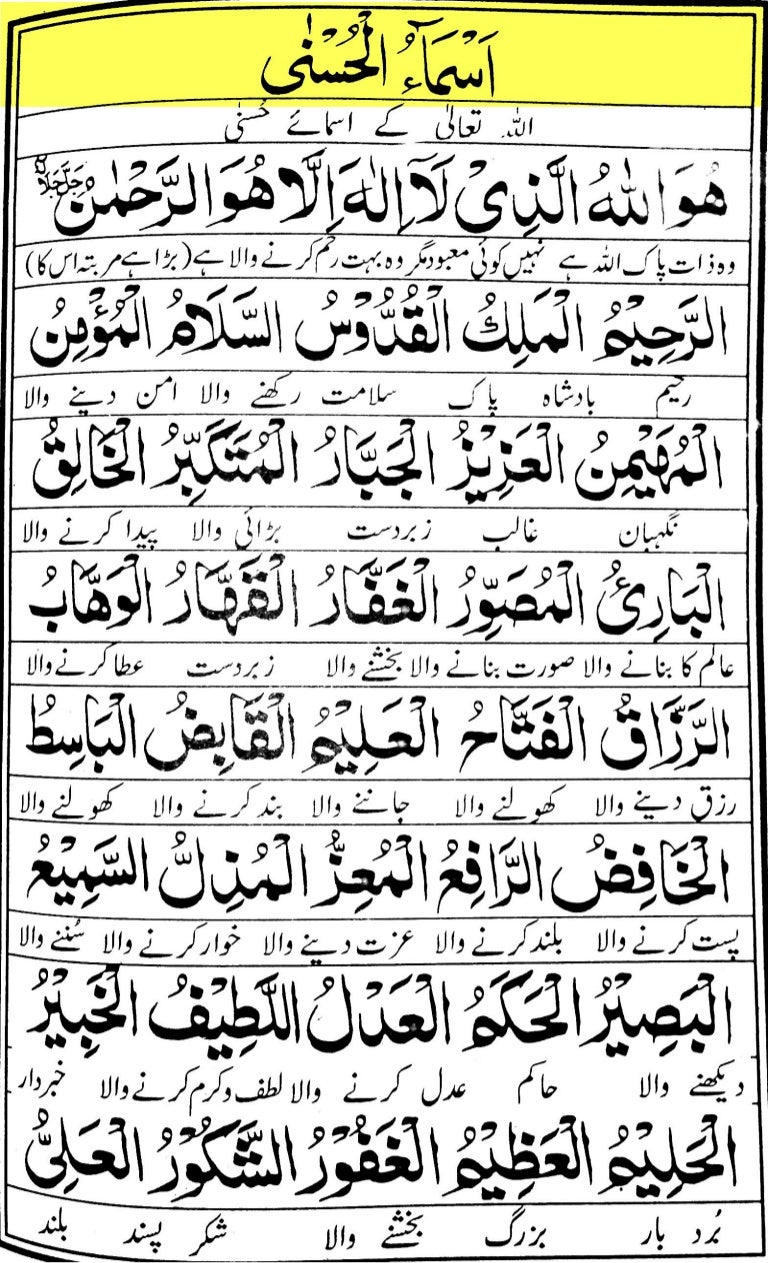 اَسْمَآءُ الْحُسْنٰی
اللہ تعالیٰ کے اسمائے حُسنیٰ
هُوَاللّٰهُ الَّذِیْ لَآ اِلٰهَ اِلَّا هُوَ الرَّحْمٰنُ جَلَّ جَلَالُهٗ
وہ ذات پاک اللہ ہے نہیں کوئی معبود مگر وہ بہت رحم کرنے والا ہے (بڑا ہے مرتبہ اس کا)
الرَّحِیْمُ الْمَلِكُ الْقُدُّوْسُ السَّلَامُ الْمُؤْمِنُ
رحیم بادشاہ پاک سلامت رکھنے والا امن دینے والا
الْمُهَیْمِنُ الْعَزِیْزُ الْجَبَّارُ الْمُتَكَبِّرُ الْخَالِقُ
نگہبان غالب زبردست بڑائی والا پیدا کرنے والا
الْبَارِئُ الْمُصَوِّرُ الْغَفَّارُ الْقَهَّارُ الْوَهَّابُ
عالم کا بنانے والا صورت بنانے والا بخشنے والا زبردست عطا کرنے والا
الرَّزَّاقُ الْفَتَّاحُ الْعَلِیْمُ الْقَابِضُ الْبَاسِطُ
رزق دینے والا کھولنے والا جاننے والا بند کرنے والا کھولنے والا
الْخَافِضُ الرَّافِعُ الْمُعِزُّ الْمُذِلُّ السَّمِیْعُ
پست کرنے والا بلند کرنے والا عزت دینے والا خوار کرنے والا سُننے والا
الْبَصِیْرُ الْحَكَمُ الْعَدْلُ اللَّطِیْفُ الْخَبِیْرُ
دیکھنے والا حاکم عدل کرنے والا لطف و کرم کرنے والا خبردار
الْحَلِیْمُ الْعَظِیْمُ الْغَفُوْرُ الشَّكُوْرُ الْعَلِیُّ
بُرد بار بزرگ بخشنے والا شکر پسند بلند